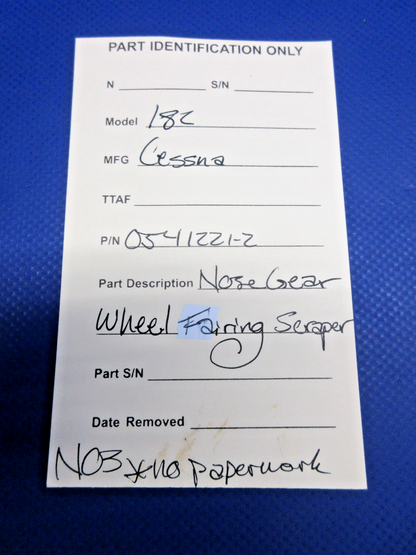 PART IDENTIFICATION ONLY
N S/N
Model 182
MFG Cessna
TTAF
P/N 0541221-2
Part Description Nose Gear
Wheel Fairing Scraper
Part S/N
Date Removed
NO3 no paperwork